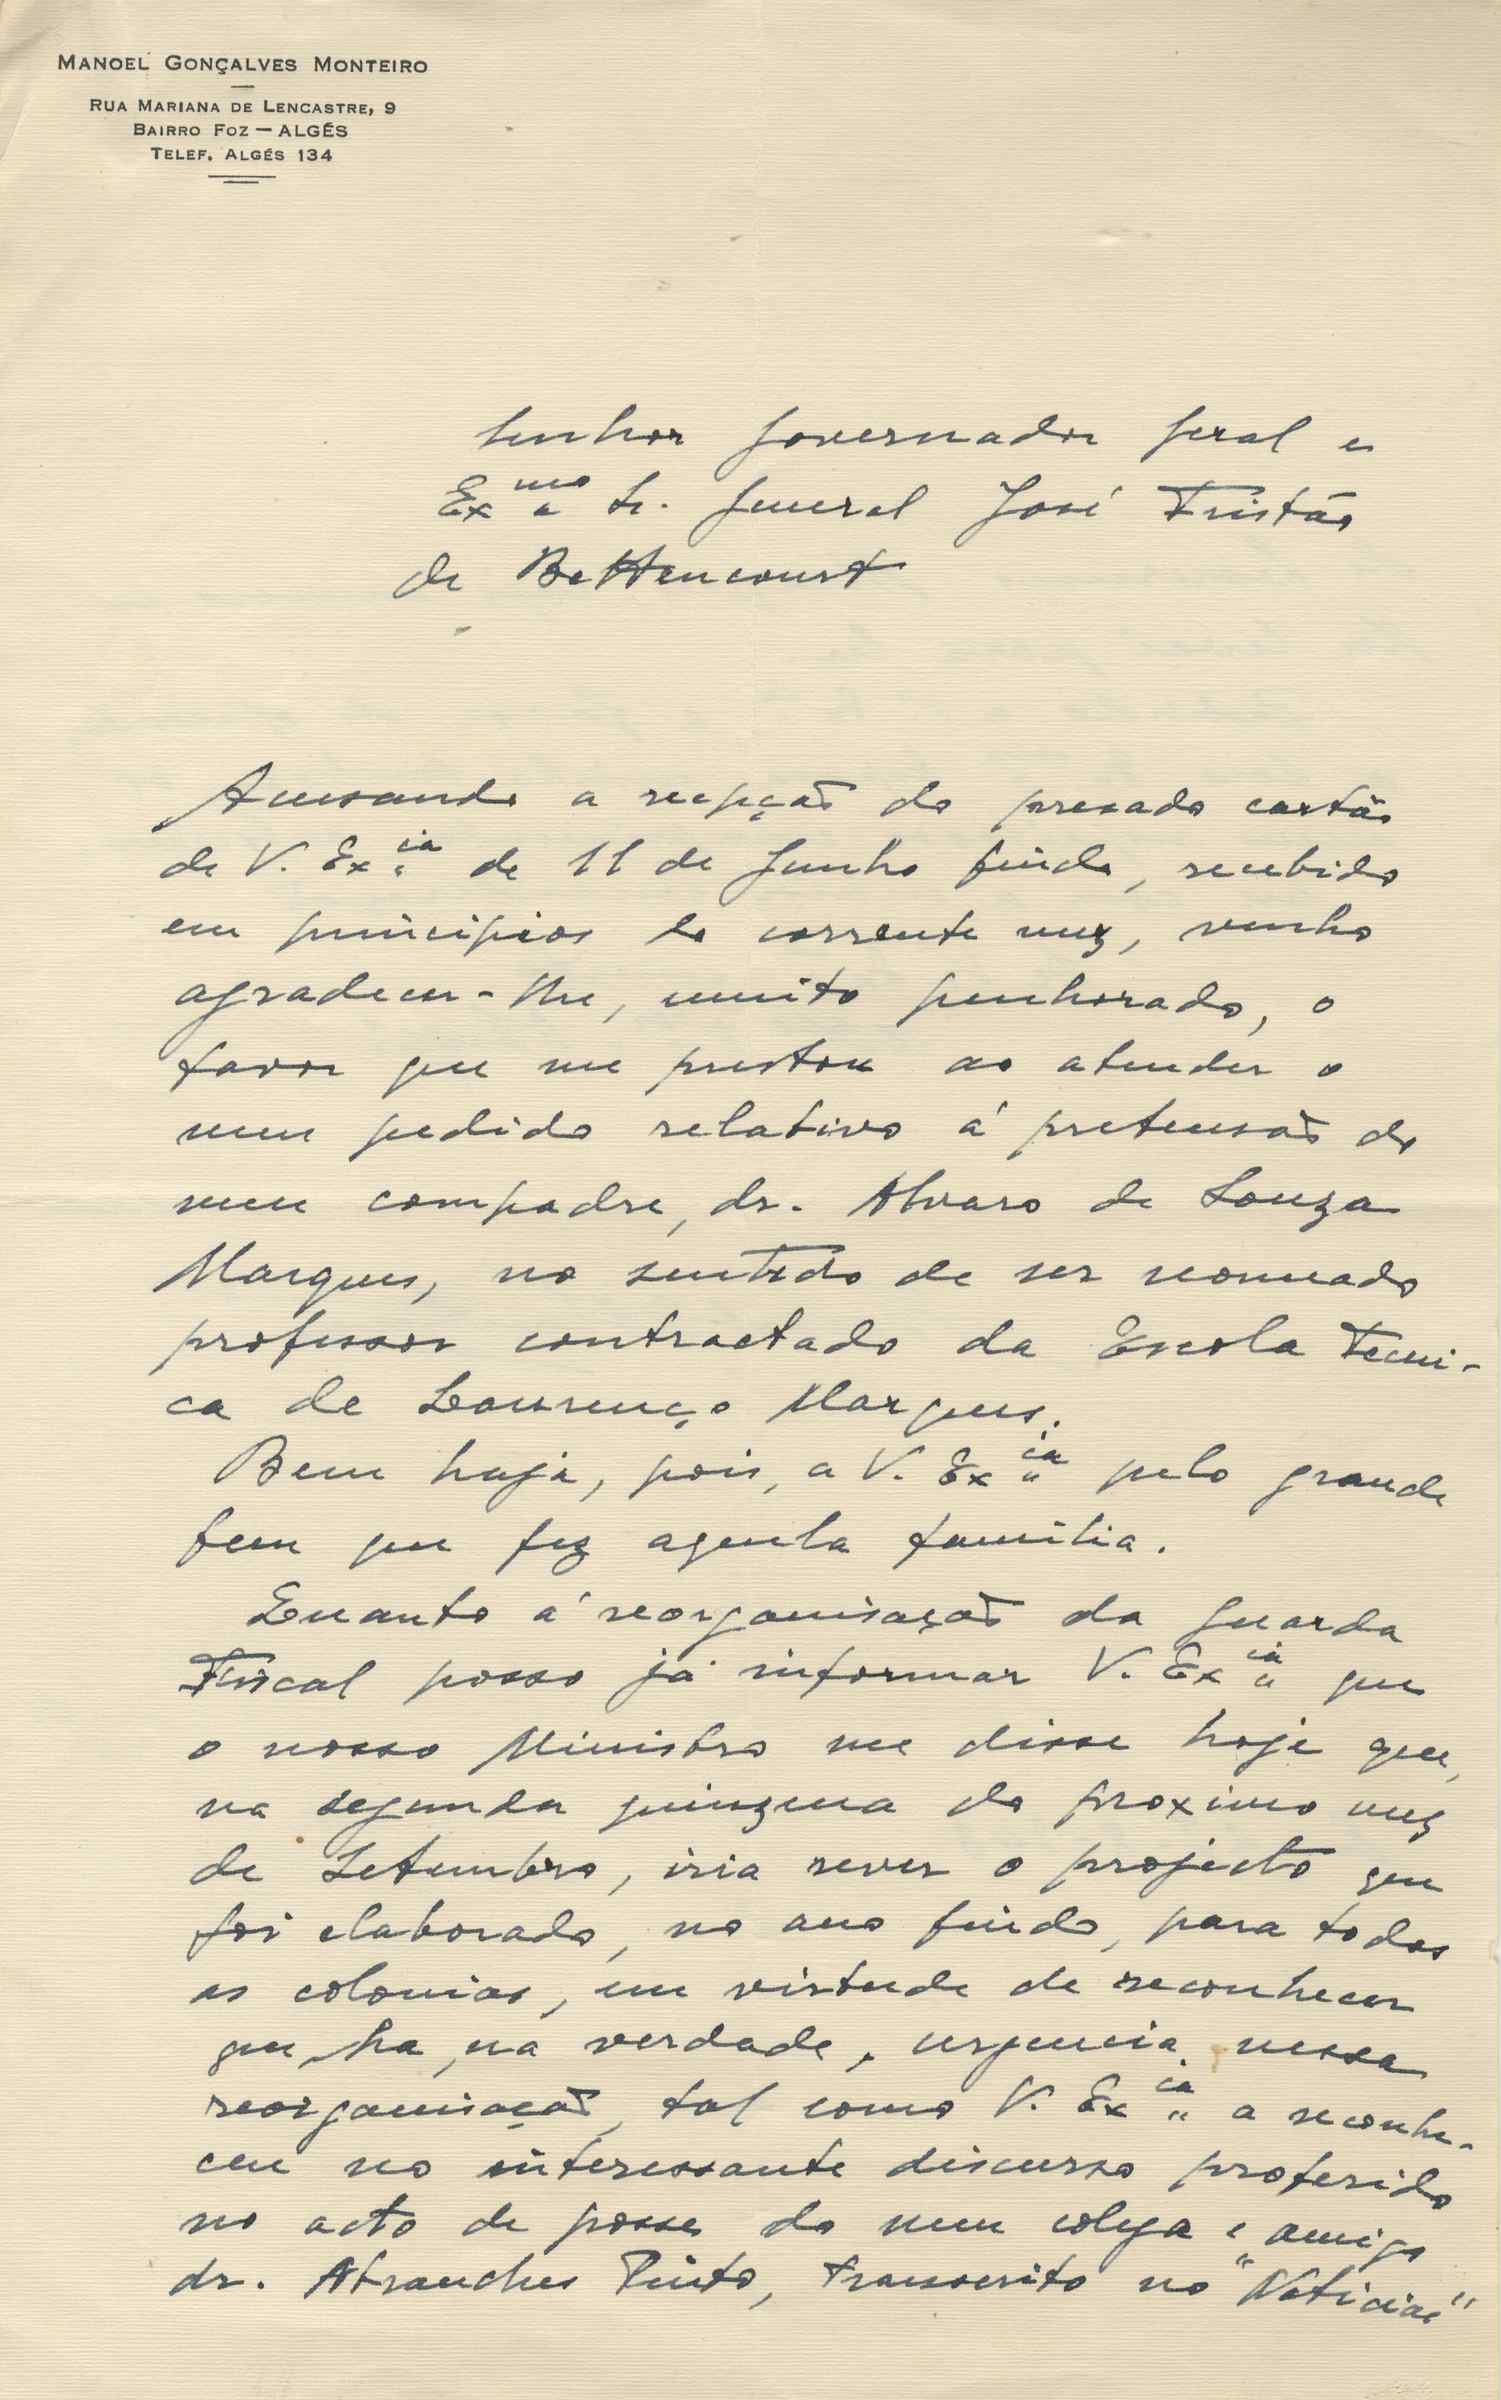 MANOEL GONÇALVES MONTEIRO
RUA MARIANA DE LENCASTRE, 9
BAIRRO FOZ — ALGÉS
TELEF. ALGÉS 134
Senhor Governador Geral e
Ex.mo Sr. General José Tristão
de Bettencourt
Acusando a recepção do presado cartão
de V. Ex.cia de 11 de Junho findo, recebido
em principios do corrente mez, venho
agradecer-lhe, muito penhorado, o
favor que me prestou ao atender o
meu pedido relativo á pretensão do
meu compadre, dr. Alvaro de Souza
Marques, no sentido de ser nomeado
professor contractado da Escola Tecni-
ca de Lourenço Marques.
Bem haja, pois, a V. Ex.cia pelo grande
bem que fez aquela familia.
Quanto á reorganisação da Guarda
Fiscal posso já informar V. Ex.cia que
o nosso Ministro me disse hoje que,
na segunda quinzena do proximo mez
de Setembro, iria rever o projecto que
foi elaborado, no ano findo, para todas
as colonias, em virtude de reconhecer
que ha, na verdade, urgencia nessa
reorganisação, tal como V. Ex.cia a reconhe-
ceu no interessante discurso proferido
no acto de posse do meu colega e amigo
dr. Abranches Pinto, transcrito no "Noticias"